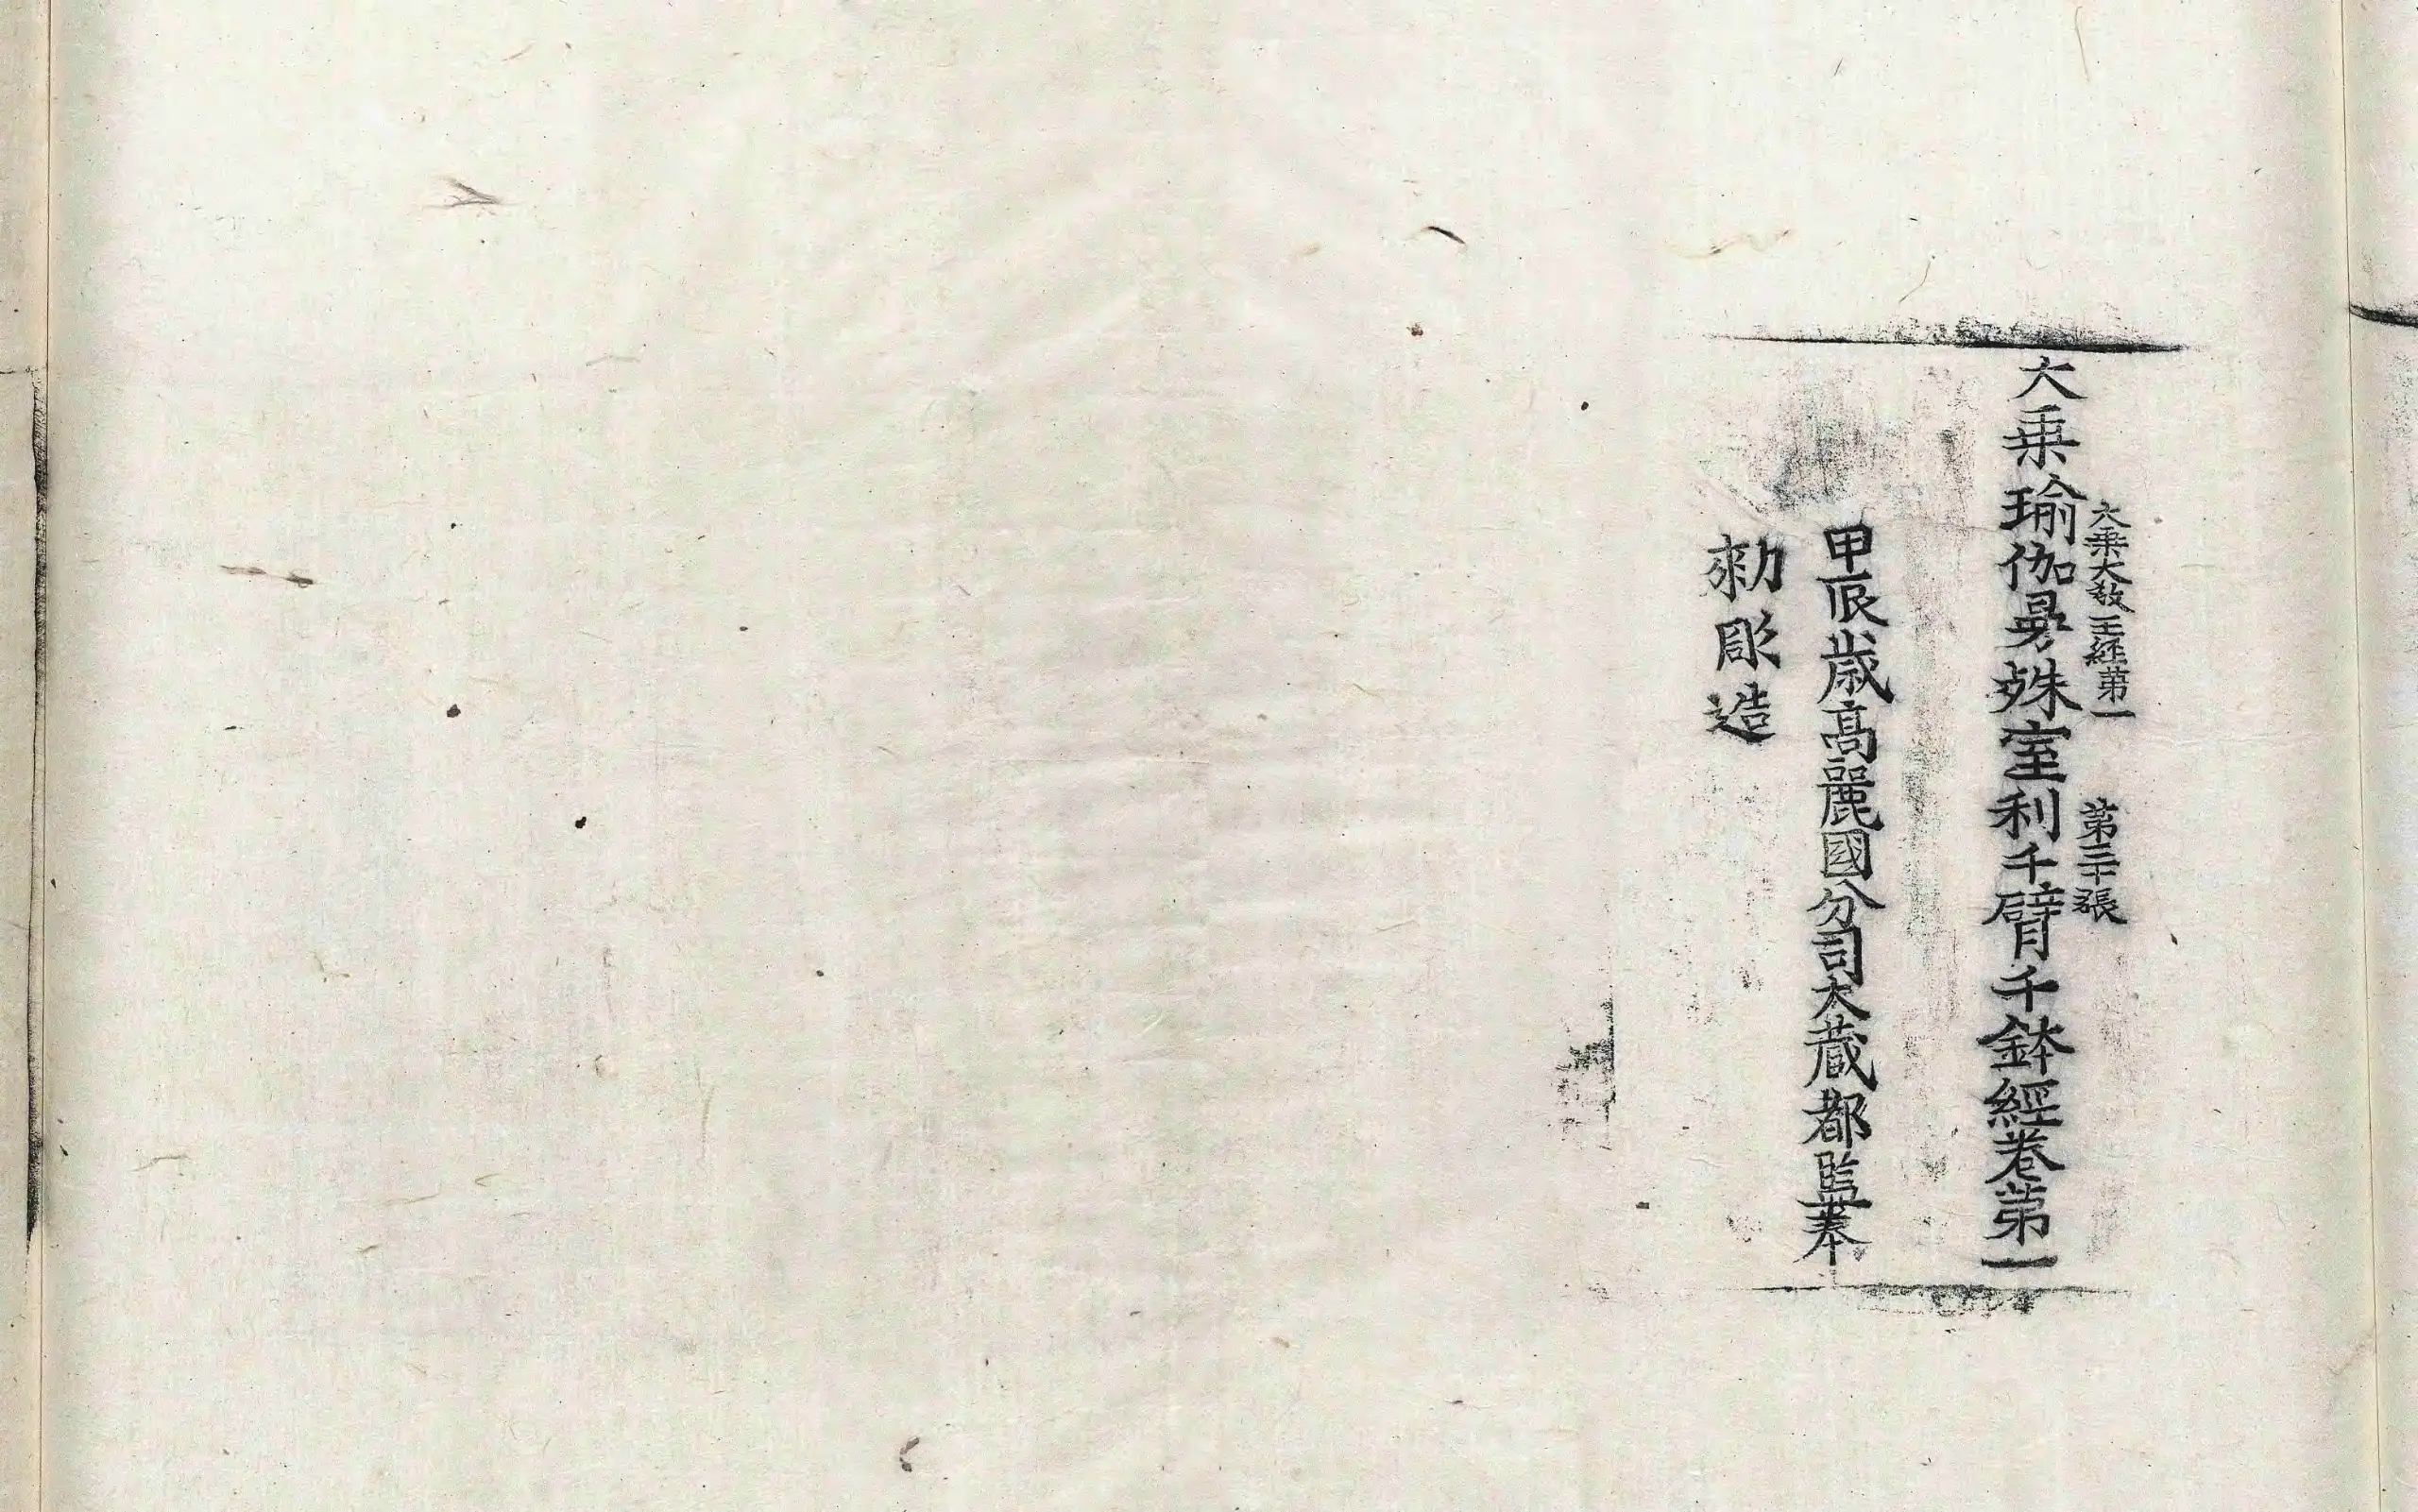 大乗大教王経第一 第二十張
大乗瑜伽曼殊室利千臂千鉢經卷第一
甲辰歳髙麗國分司大蔵都監奉
勑彫造